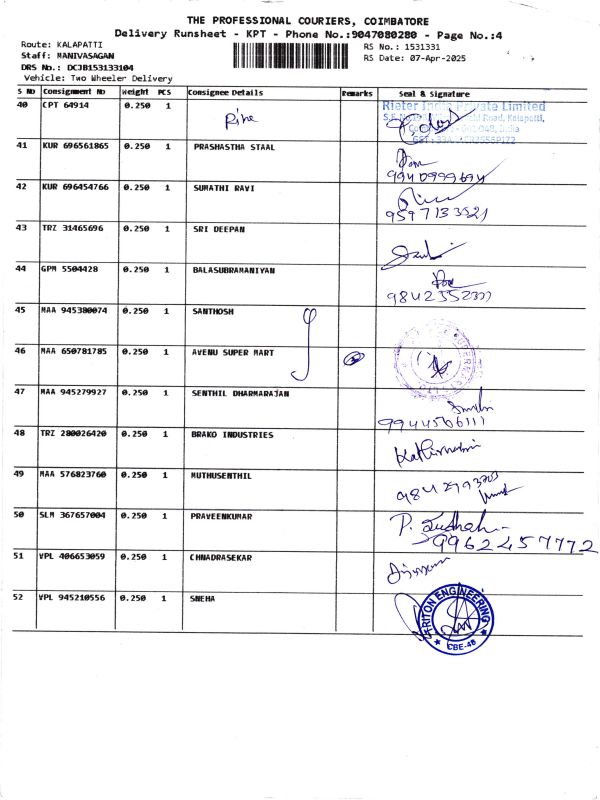 THE PROFESSIONAL COURIERS, COIMBATORE
Delivery Runsheet - KPT - Phone No.:9047080280 - Page No.:4
Route: KALAPATTI
Staff: MANIVASAGAN
DRS No.: DCJB153133104
Vehicle: Two Wheeler Delivery
RS No.: 1531331
RS Date: 07-Apr-2025
S No Consignment No Weight PCS Consignee Details Remarks Seal & Signature
40 CPT 64914 0.250 1
Rieter India Private Limited
41 KUR 696561865 0.250 1 PRASHASTHA STAAL
9940999694
42 KUR 696454766 0.250 1 SUMATHI RAVI
9597133521
43 TRZ 31465696 0.250 1 SRI DEEPAN
44 GPM 5504428 0.250 1 BALASUBRAMANIYAN
45 MAA 945380074 0.250 1 SANTHOSH
46 MAA 650781785 0.250 1 AVENU SUPER MART
47 MAA 945279927 0.250 1 SENTHIL DHARMARAJAN
9944566111
48 TRZ 280026420 0.250 1 BRAKO INDUSTRIES
49 MAA 576823760 0.250 1 MUTHUSENTHIL
50 SLM 367657004 0.250 1 PRAVEENKUMAR
9962457772
51 VPL 406653059 0.250 1 CHNADRASEKAR
52 VPL 945210556 0.250 1 SNEHA
TRITON ENGINEERING
CBE-48